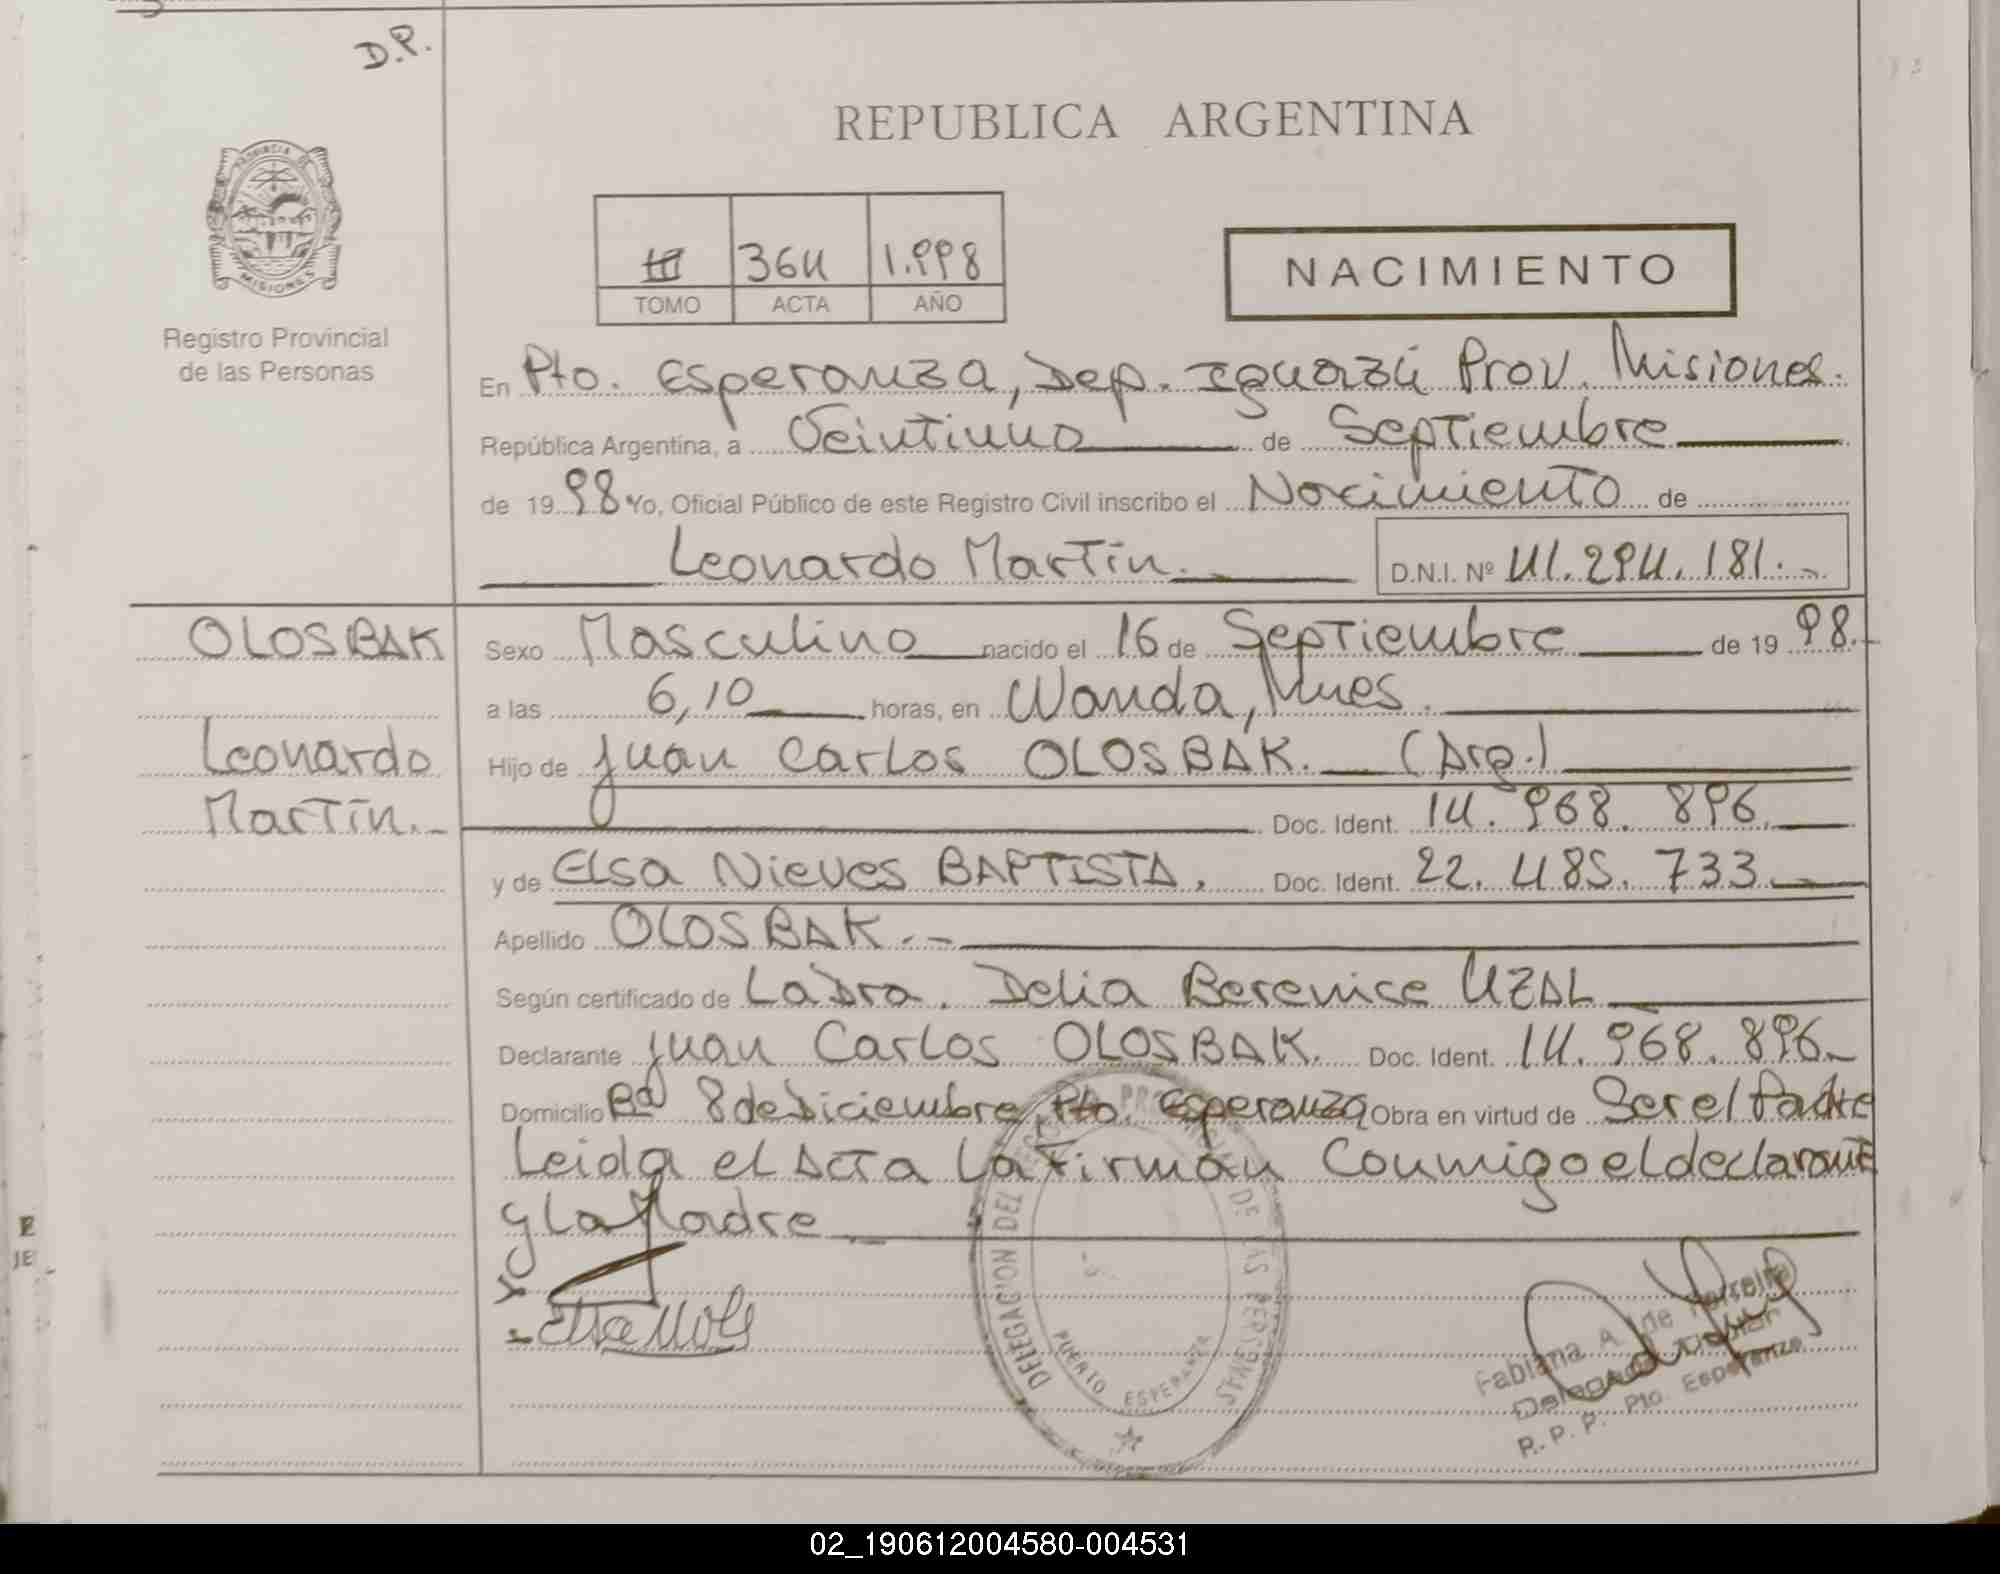 D.P.
REPUBLICA ARGENTINA
PROVINCIA DE
MISIONES
Registro Provincial
de las Personas
III 364 1.998
TOMO ACTA AÑO
NACIMIENTO
En Pto. Esperanza, Dep. Iguazú Prov. Misiones.
República Argentina, a Veintiuno de Septiembre
de 1998 Yo, Oficial Público de este Registro Civil inscribo el Nacimiento de
Leonardo Martín. D.N.I. Nº 41.294.181.-
OLOSBAK
Leonardo
Martín.-
Sexo Masculino nacido el 16 de Septiembre de 1998.-
a las 6,10 horas, en Wanda, Mnes.
Hijo de Juan Carlos OLOSBAK. (Arg.)
Doc. Ident. 14.968.896.
y de Elsa Nieves BAPTISTA. Doc. Ident. 22.485.733.-
Apellido OLOSBAK.--
Según certificado de La Dra. Delia Berenice UZAL
Declarante Juan Carlos OLOSBAK. Doc. Ident. 14.968.896.-
Domicilio Bº 8 de Diciembre, Pto. Esperanza Obra en virtud de Ser el Padre
Leida el Acta La Firman Conmigo el declarante
y La Madre
DELEGACION DEL REGISTRO PROVINCIAL DE LAS PERSONAS
PUERTO ESPERANZA
Fabiana A. de Ferreira
Delegada Titular
R. P. P. Pto. Esperanza
02_190612004580-004531